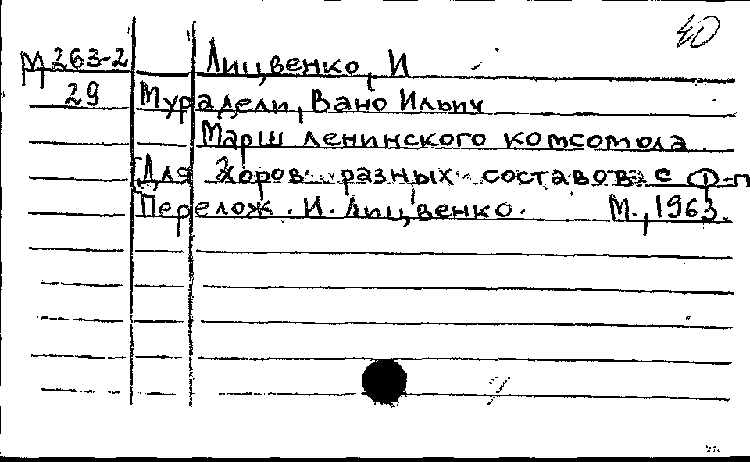 40
М 263-2 Лицвенко, И
29 Мурадели, Вано Ильич
Марш ленинского комсомола
[Для хоров разных составов в с ф-п
Перелож. И. Лицвенко. М., 1963.